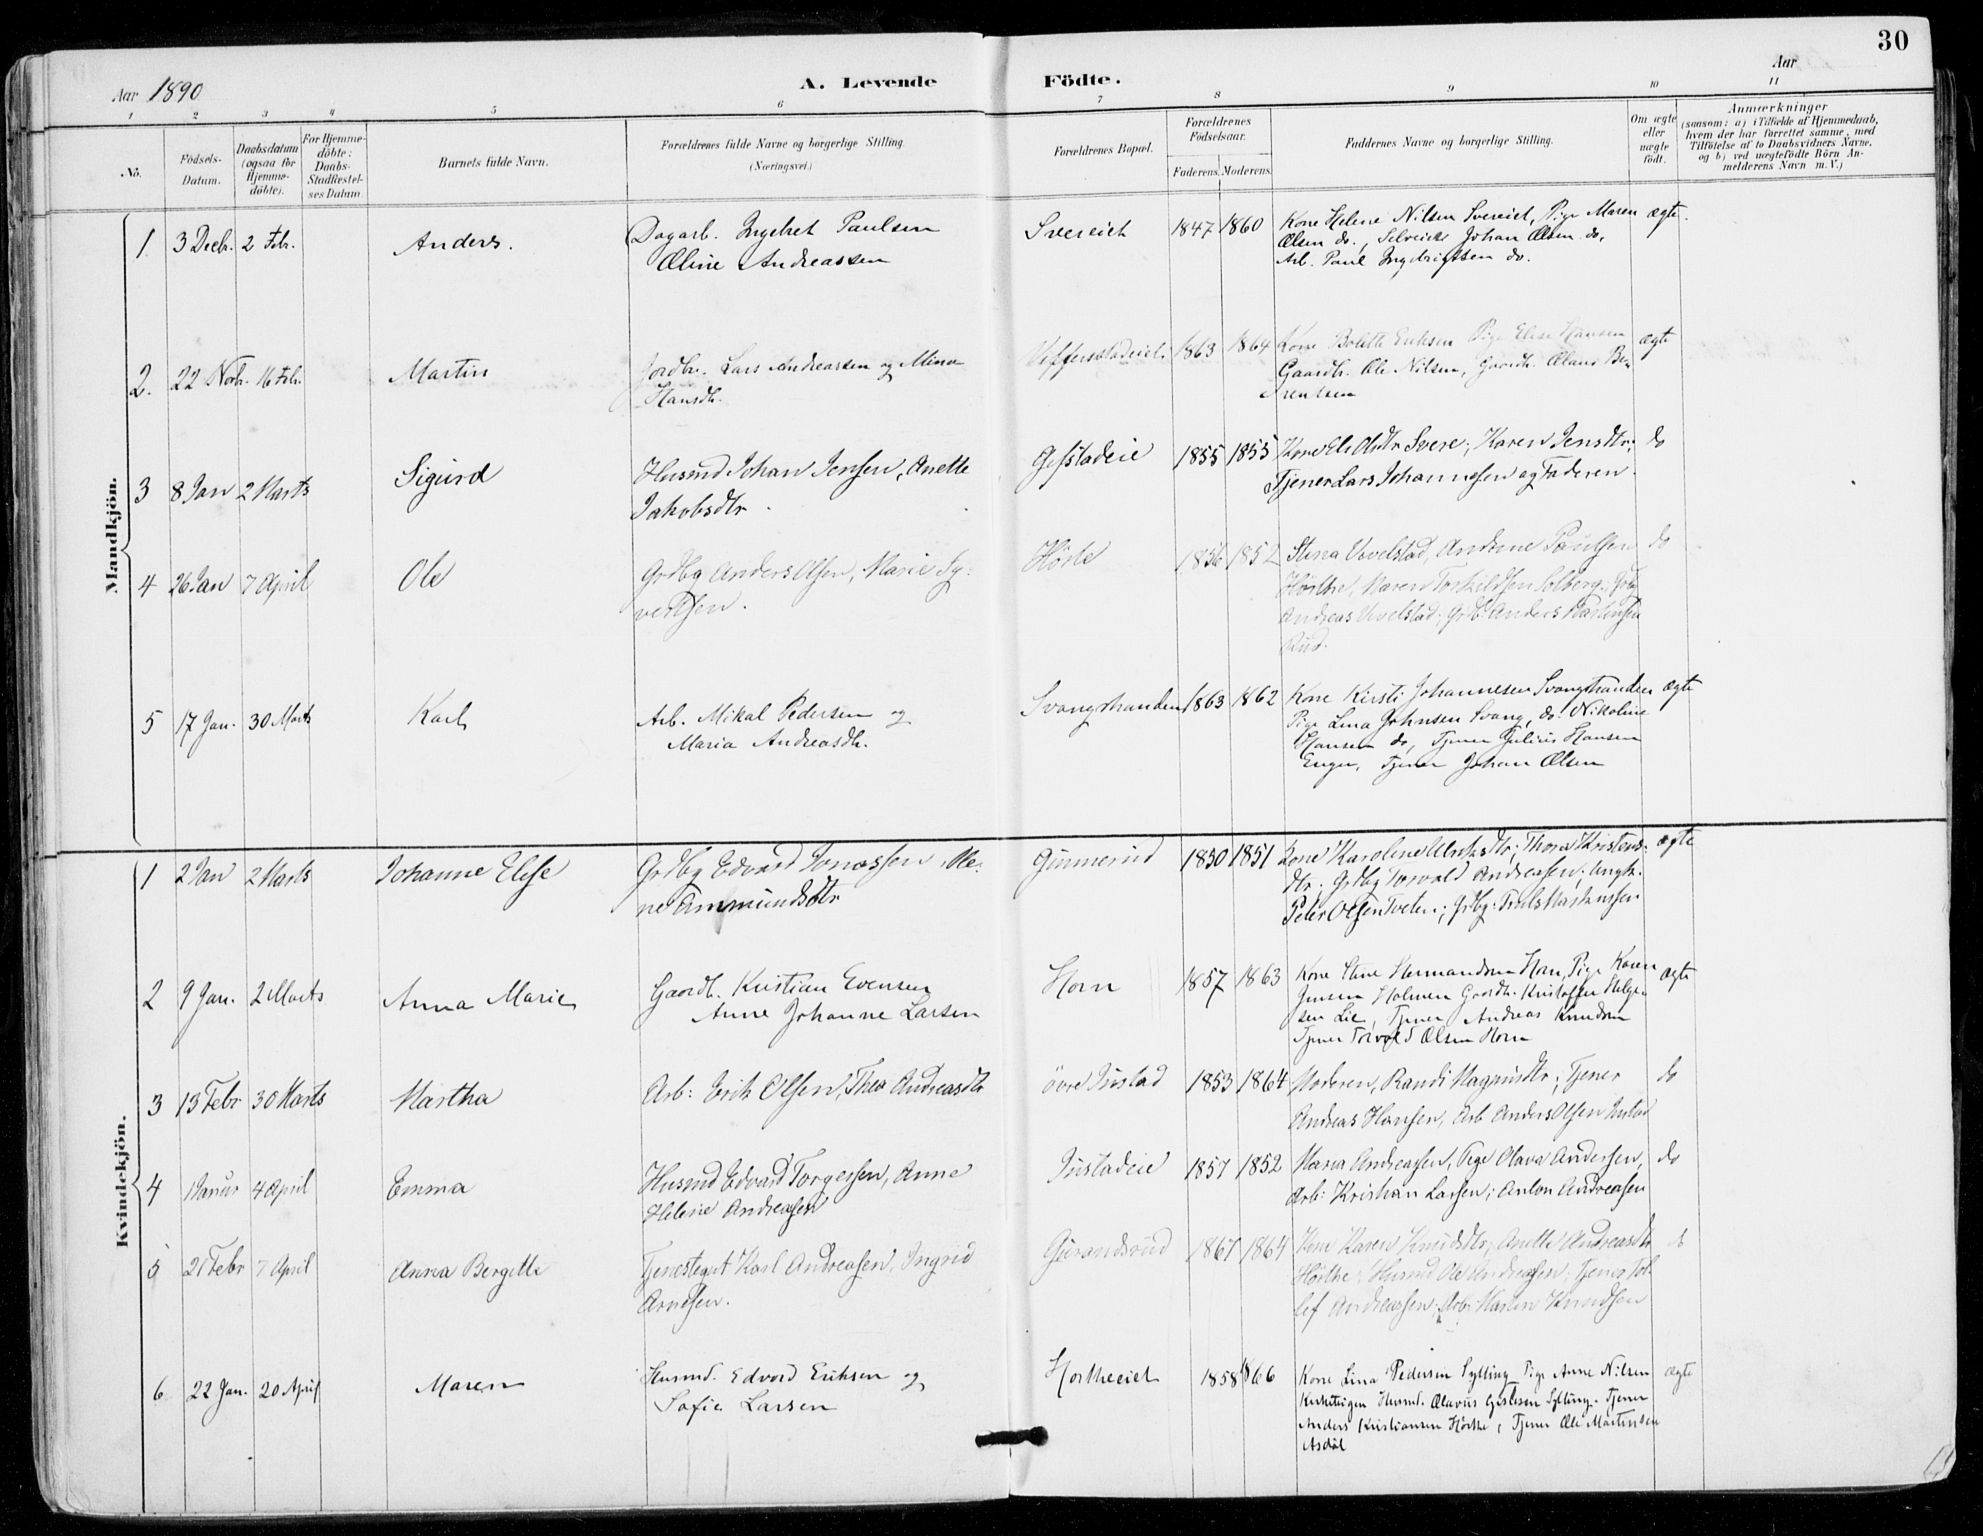 30
Aar 1890
A. Levende Födte.
Aar
1 2 3 4 5 6 7 8 9 10 11
No.
Födsels-Datum.
Daabsdatum (ogsaa for Hjemmedöbte).
For Hjemmedöbte: Daabs-Stadfæstelses Datum
Barnets fulde Navn.
Forældrenes fulde Navne og borgerlige Stilling.
(Næringsvei.)
Forældrenes Bopæl.
Forældrenes Födselsaar.
Faderens. Moderens.
Faddernes Navne og borgerlige Stilling.
Om ægte eller uægte födt.
Anmærkninger
(saasom: a) i Tilfælde af Hjemmedaab,
hvem der har forrettet samme, med
Tilföielse af to Daabsvidners Navne,
og b) ved uægtefödte Börn Anmelderens Navn m.V.)
Mandkjön.
1 3 Decbr. 2 Febr. Anders. Dagarb. Paulsen Svereiet 1847 1860 Kone Helene Nilsen Svereiet, Pige Maren ægte.
Oline Andreassen Olsen do., Johan Olsen do.
Arb. Paul Ingebrigtsen do.
2. 22 Novbr. 16 Febr. Martin Jordbr. Lars Andreassen og Mina 1863 1864 Kone Bolette Eriksen Pige Elise Hansen ægte
Hansdtr. Gaardbr. Ole Nilsen, Gaardbr. Olaus Berentsen
3 8 Jan 2 Marts Sigurd Husmd Johan Jensen, Anette Gjestadeie 1855 1855 Kone Svere; Karen Jensdtr; do
Jakobsdtr. Tjener Lars Johannesen og Faderen.
4 26 Jan 7 April Ole Grdbg Anders Olsen, Marie Sy- 1856 1852 Stina Uvelstad, Andrine Paulsen do
vertsen. Hörthe, Maren Torkildsen Solberg;
Andreas Uvelstad; Grdb Anders Martinsen
Rud.
5 17 Jan. 30 Marts Karl Arb. Mikal Pedersen og Svangstranden 1863 1862 Kone Kirsti Johannesen Svangstranden ægte
Maria Andreasdtr. Pige Lina Johnsen Svang, do. Nikoline
Hansen do, Tjener Julius Hansen
Enger, Tjener Johan Olsen
Kvindekjön.
1 2 Jan 2 Marts Johanne Elise Grdbg Edvard Jonassen, Gunnerud 1850 1851 Kone Karoline Ulriksdtr; Thora Kristens- ægte
Ammundsdtr dtr; Grdbg Torvald Andreasen; Ungk.
Peter Olsen Tveten; Grdbg: Truls Martinssen
2 9 Jan. 2 Marts Anna Marie Gaardb. Kristian Evensen Horn 1857 1863 Kone Stine Hermandsen Horn, Pige Karen ægte
Anne Johanne Larsen Jensen Holmen Gaardb. Kristoffer Helge-
sen Lie, Tjener Andreas Knudsen
Tjener Torvald Olsen Horn
3 13 Febr 30 Marts Martha Arb: Erik Olsen, Thea Andreasdtr övre Justad 1853 1864 Moderen, Randi Magnusdtr; Tjener do
Andreas Hansen, Arb Anders Olsen Justad
4 1 Januar 4 April Emma Husmd Edvard Torgersen, Anne Justadeie 1857 1852 Maria Andreasen, Pige Olava Andersen, do
Helene Andreasen Arb: Kristian Larsen; Anton Andreasen
5 2 Febr 7 April Anna Bergitte Tjenestegut Karl Andreasen, Ingrid Gurandsrud 1867 1864 Kone Karen Knudsdtr; Anette Andreasdtr do
Arnesen. Hörthe; Husmd Ole Andreasen; Tjener Tol-
lef Andreassen; Arb: Martin Knudsen
6 22 Jan. 20 April Maren Husmd. Edvard Eriksen og Hortheeiet 1858 1866 Kone Lina Pedersen Sylling Pige Anne Nilsen ægte
Sofie Larsen Husmd. Olavus Gislesen Sylling. Tjener
Anders Kristiansen Hörthe, Tjener Ole Martinsen
Asdöl